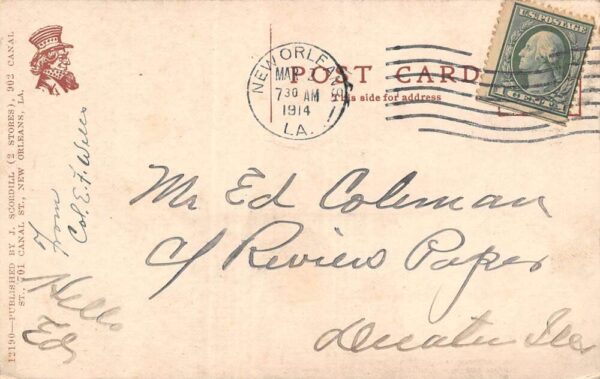 POST CARD
This side for address
NEW ORLEANS
MAR
7 30 AM
1914
LA.
U.S. POSTAGE
Mr Ed Coleman
c/ Reviews Paper
Decatur Ills
From
Col. E. F. Wells
Hello
Ed
12190—PUBLISHED BY J. SCORDILL (2 STORES), 902 CANAL
ST., 701 CANAL ST., NEW ORLEANS, LA.